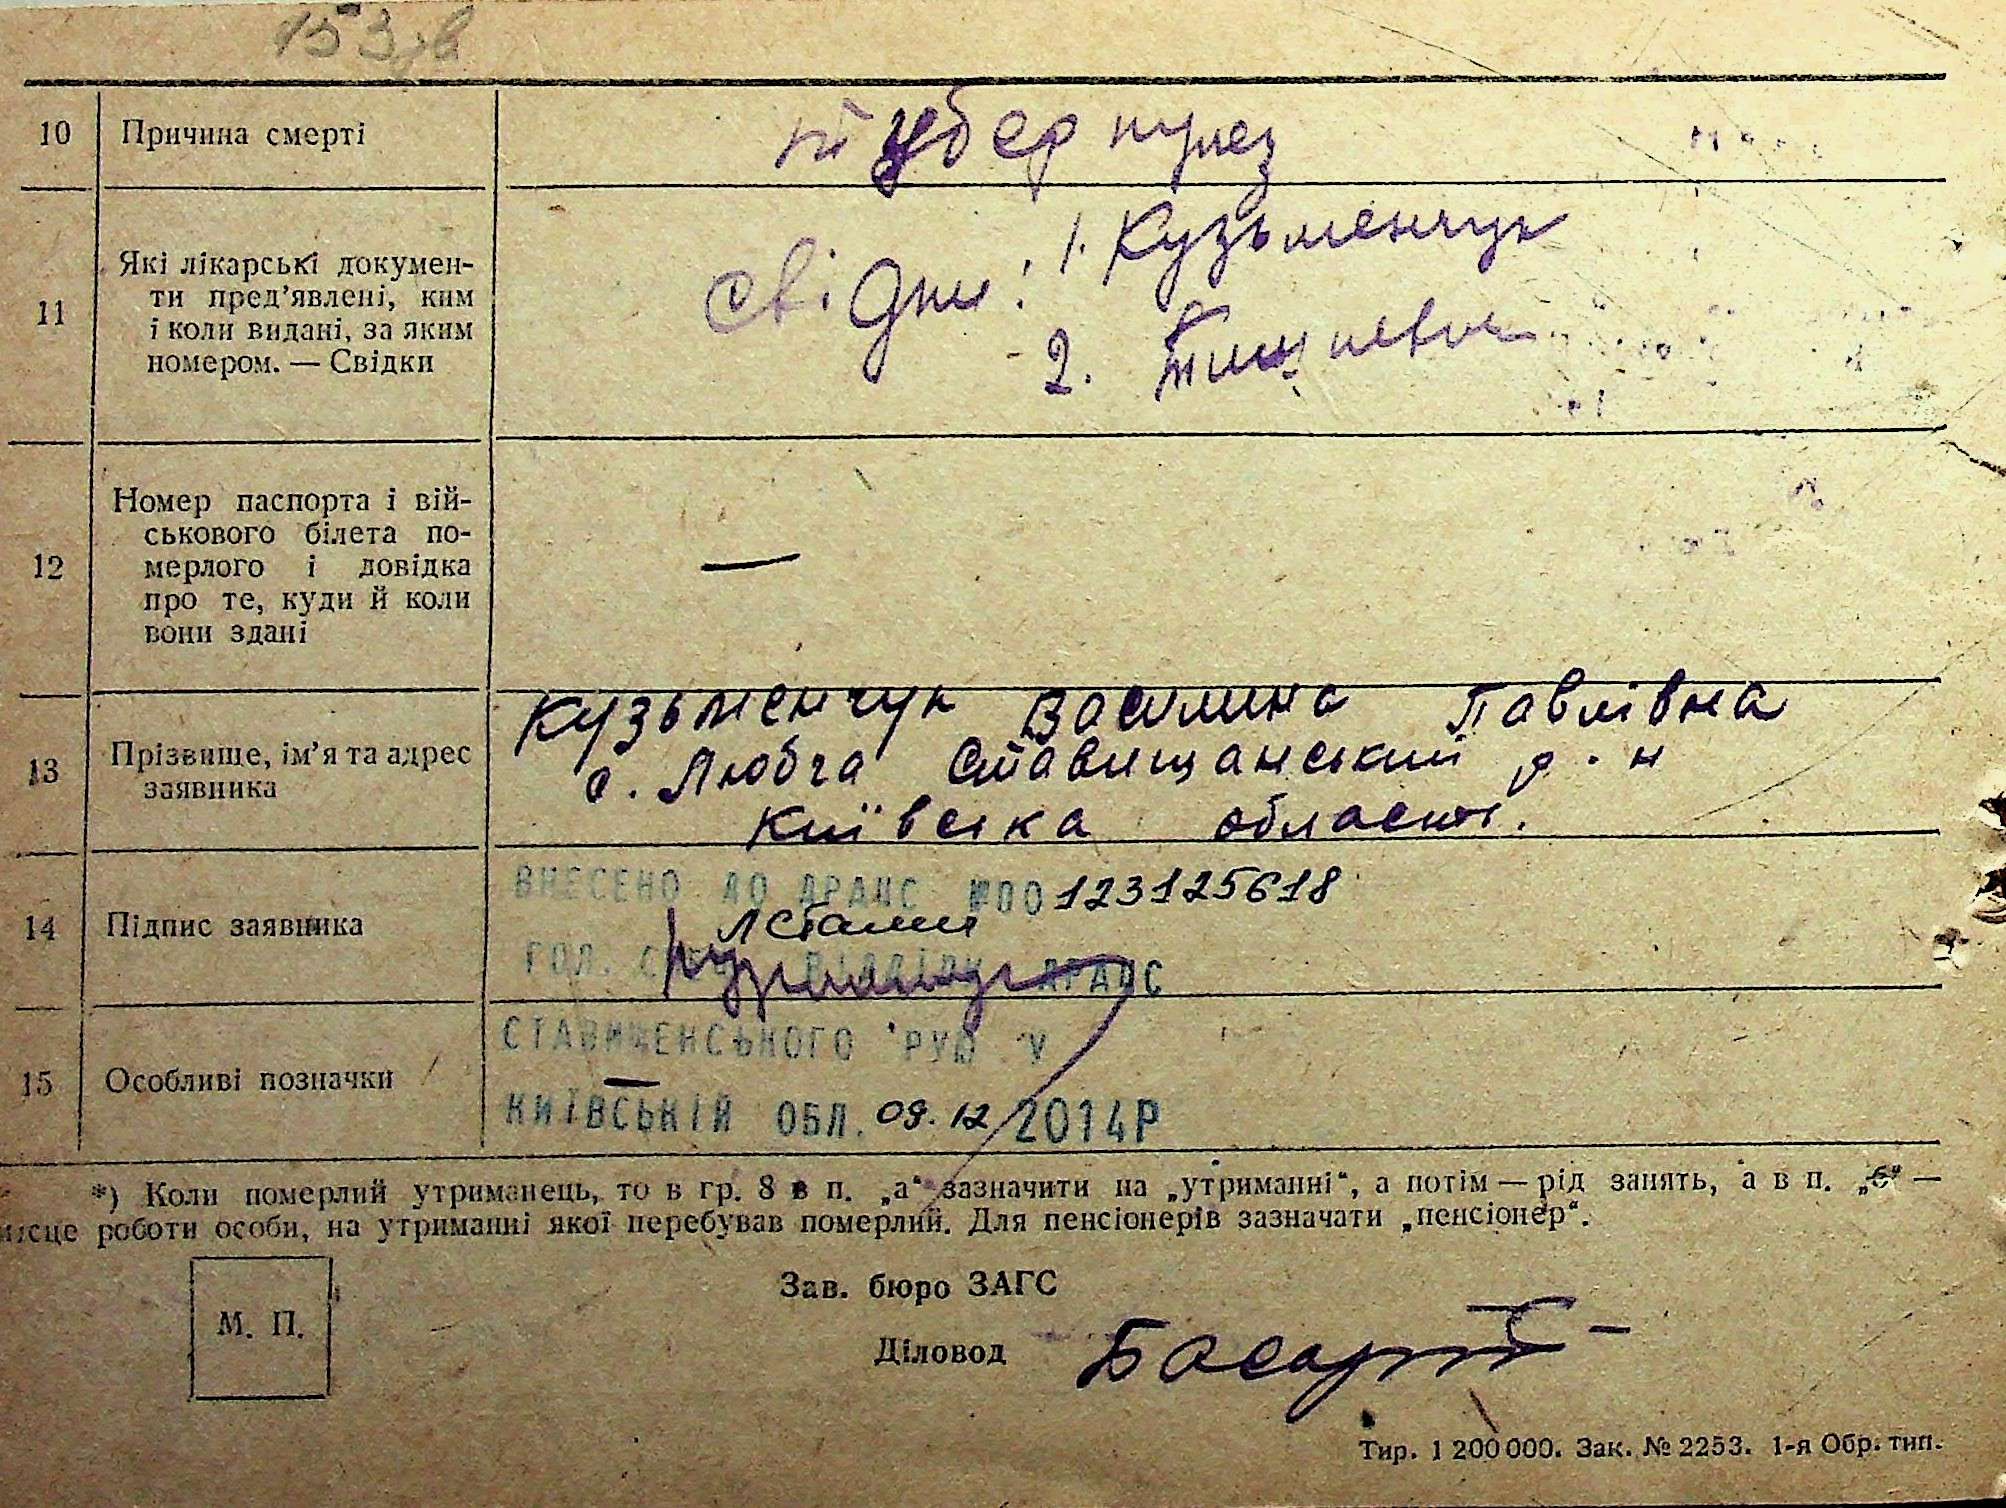 153 зв
10 Причина смерті туберкулез
11 Які лікарські докумен-
ти пред'явлені, ким
і коли видані, за яким
номером. — Свідки
Свідки: 1. Кузьменчук
2.
12 Номер паспорта і вій-
ськового білета по-
мерлого і довідка
про те, куди й коли
вони здані
—
13 Прізвище, ім'я та адрес
заявника
Кузьменчук Василина Павлівна
с. Любча Ставищанський р-н
Київська область.
14 Підпис заявника
ВНЕСЕНО ДО ДРАЦС №00123125618
ГОЛ. СПЕЦ. ВІДДІЛУ ДРАЦС
15 Особливі позначки
—
СТАВИЩЕНСЬКОГО РУЮ У
КИЇВСЬКІЙ ОБЛ. 09.12 2014Р
*) Коли померлий утриманець, то в гр. 8 в п. „а“ зазначити на „утриманні“, а потім — рід занять, а в п. „б“ —
місце роботи особи, на утриманні якої перебував померлий. Для пенсіонерів зазначати „пенсіонер“.
М. П.
Зав. бюро ЗАГС
Діловод
Тир. 1 200 000. Зак. № 2253. 1-я Обр. тип.